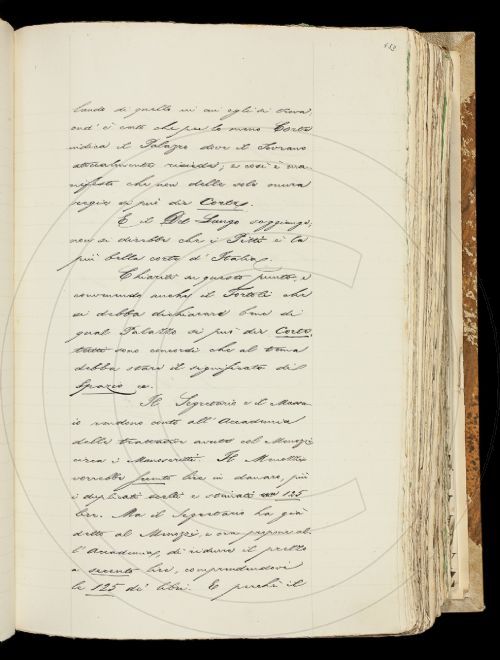 lando di quello in cui egli si trova,
ond' è certo che per lo meno Corte
indica il Palazzo dove il Sovrano
attualmente risieda, e così è ma-
nifesto che non delle sole mura
regie si può dir Corte.
E il Del Lungo soggiunge,
non si direbbe che i Pitti è la
più bella corte d' Italia.
Chiarito su questo punto, e
convenendo anche il Tortoli che
si debba dichiarare bene di
qual Palazzo si può dir Corte,
tutti sono concordi che al tema
debba stare il significato di
Spazio ec.
Il Segretario e il Massa-
io rendono conto all' Accademia
delle trattative avute col Menozzi
circa i Manoscritti. Il Menozzi
vorrebbe lire in danaro, più
i duplicati scelti e stimati 125
lire. Ma il Segretario ha già
detto al Menozzi, e ora propone al-
l' Accademia, di ridurre il prezzo
a secento lire, comprendendovi
le 125 di libri. E perchè il